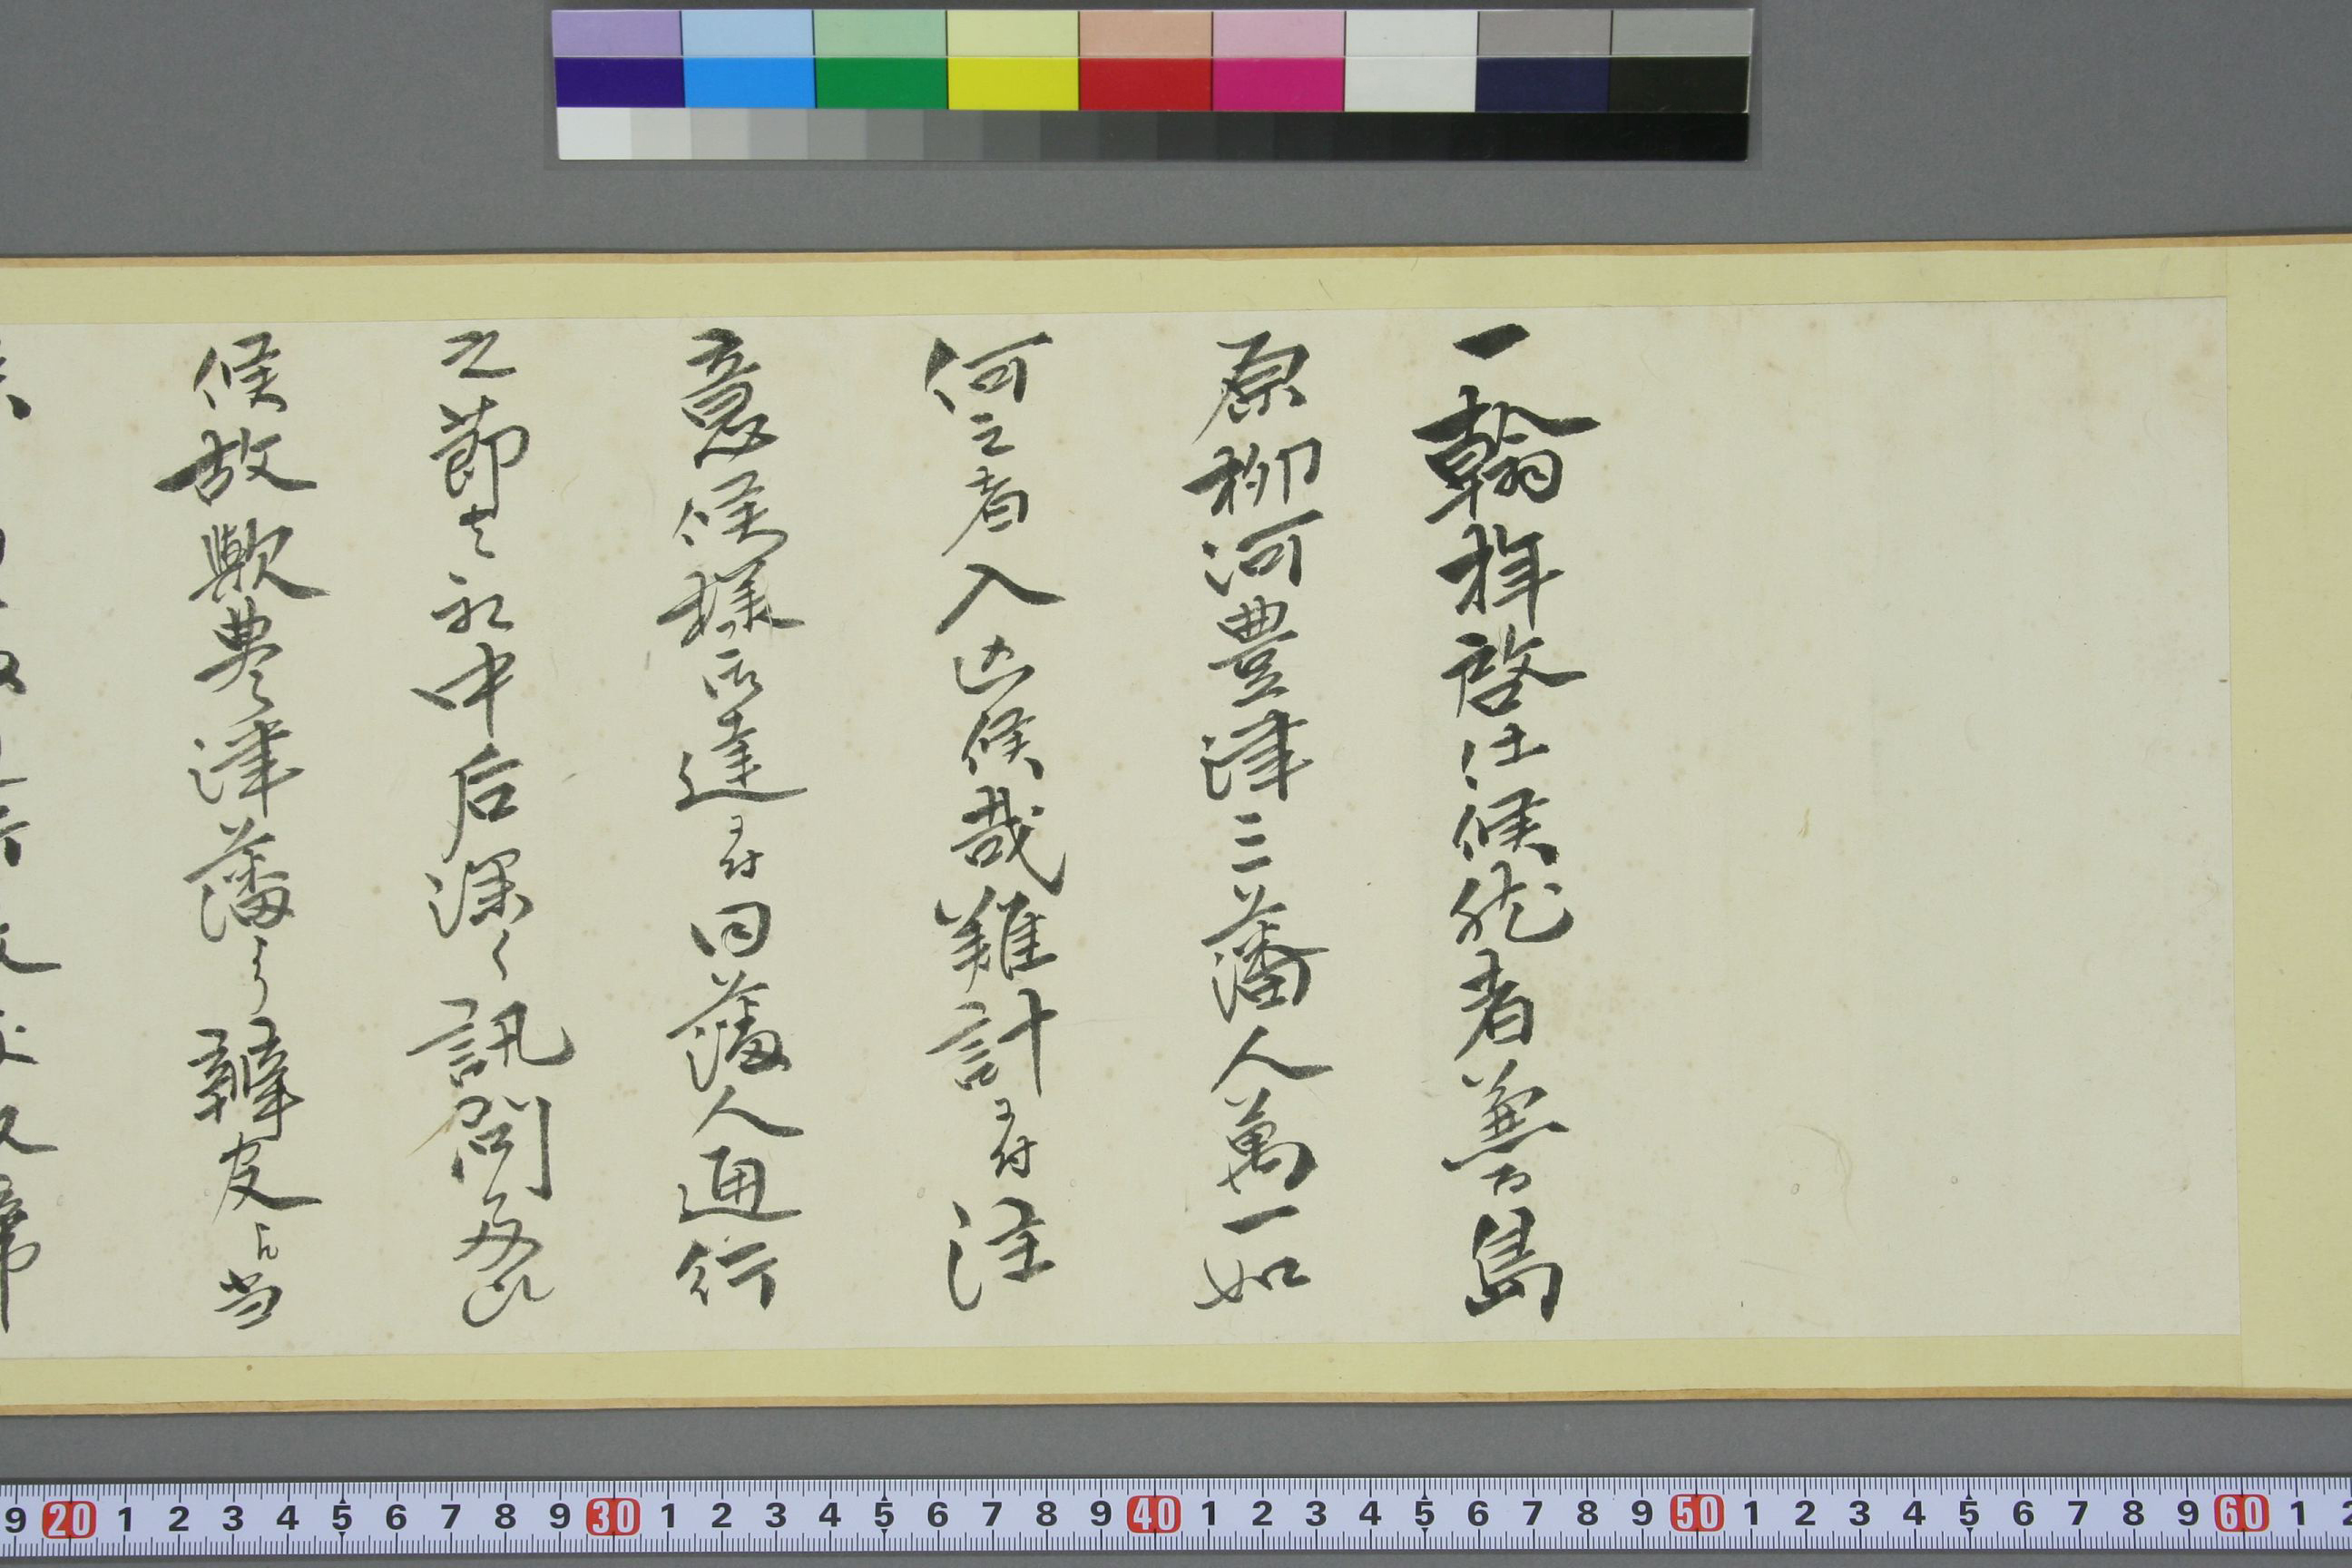 一翰拝啓仕候然者兼而島
原柳河豊津三藩人萬一如
何之者入込候哉難計ニ付注
意候様御達ニ付同藩人通行
之節者取中后深く訊問為致
候故歟豊津藩より韓皮与当
9 20 1 2 3 4 5 6 7 8 9 30 1 2 3 4 5 6 7 8 9 40 1 2 3 4 5 6 7 8 9 50 1 2 3 4 5 6 7 8 9 60 1 2